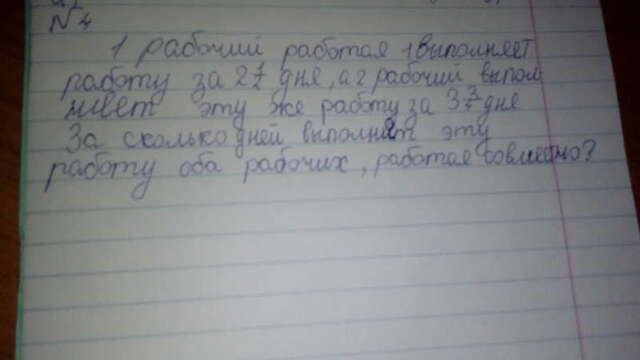 №4
1 рабочий работая 1 выполняет
работу за 2 дня, а 2 рабочий выпол
няет эту же работу за 3 дня
За сколько дней выполнят эту
работу оба рабочих, работая совместно?